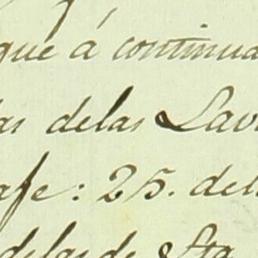 que á continua
as delas Lav
afe: 25. del
delas de Sta